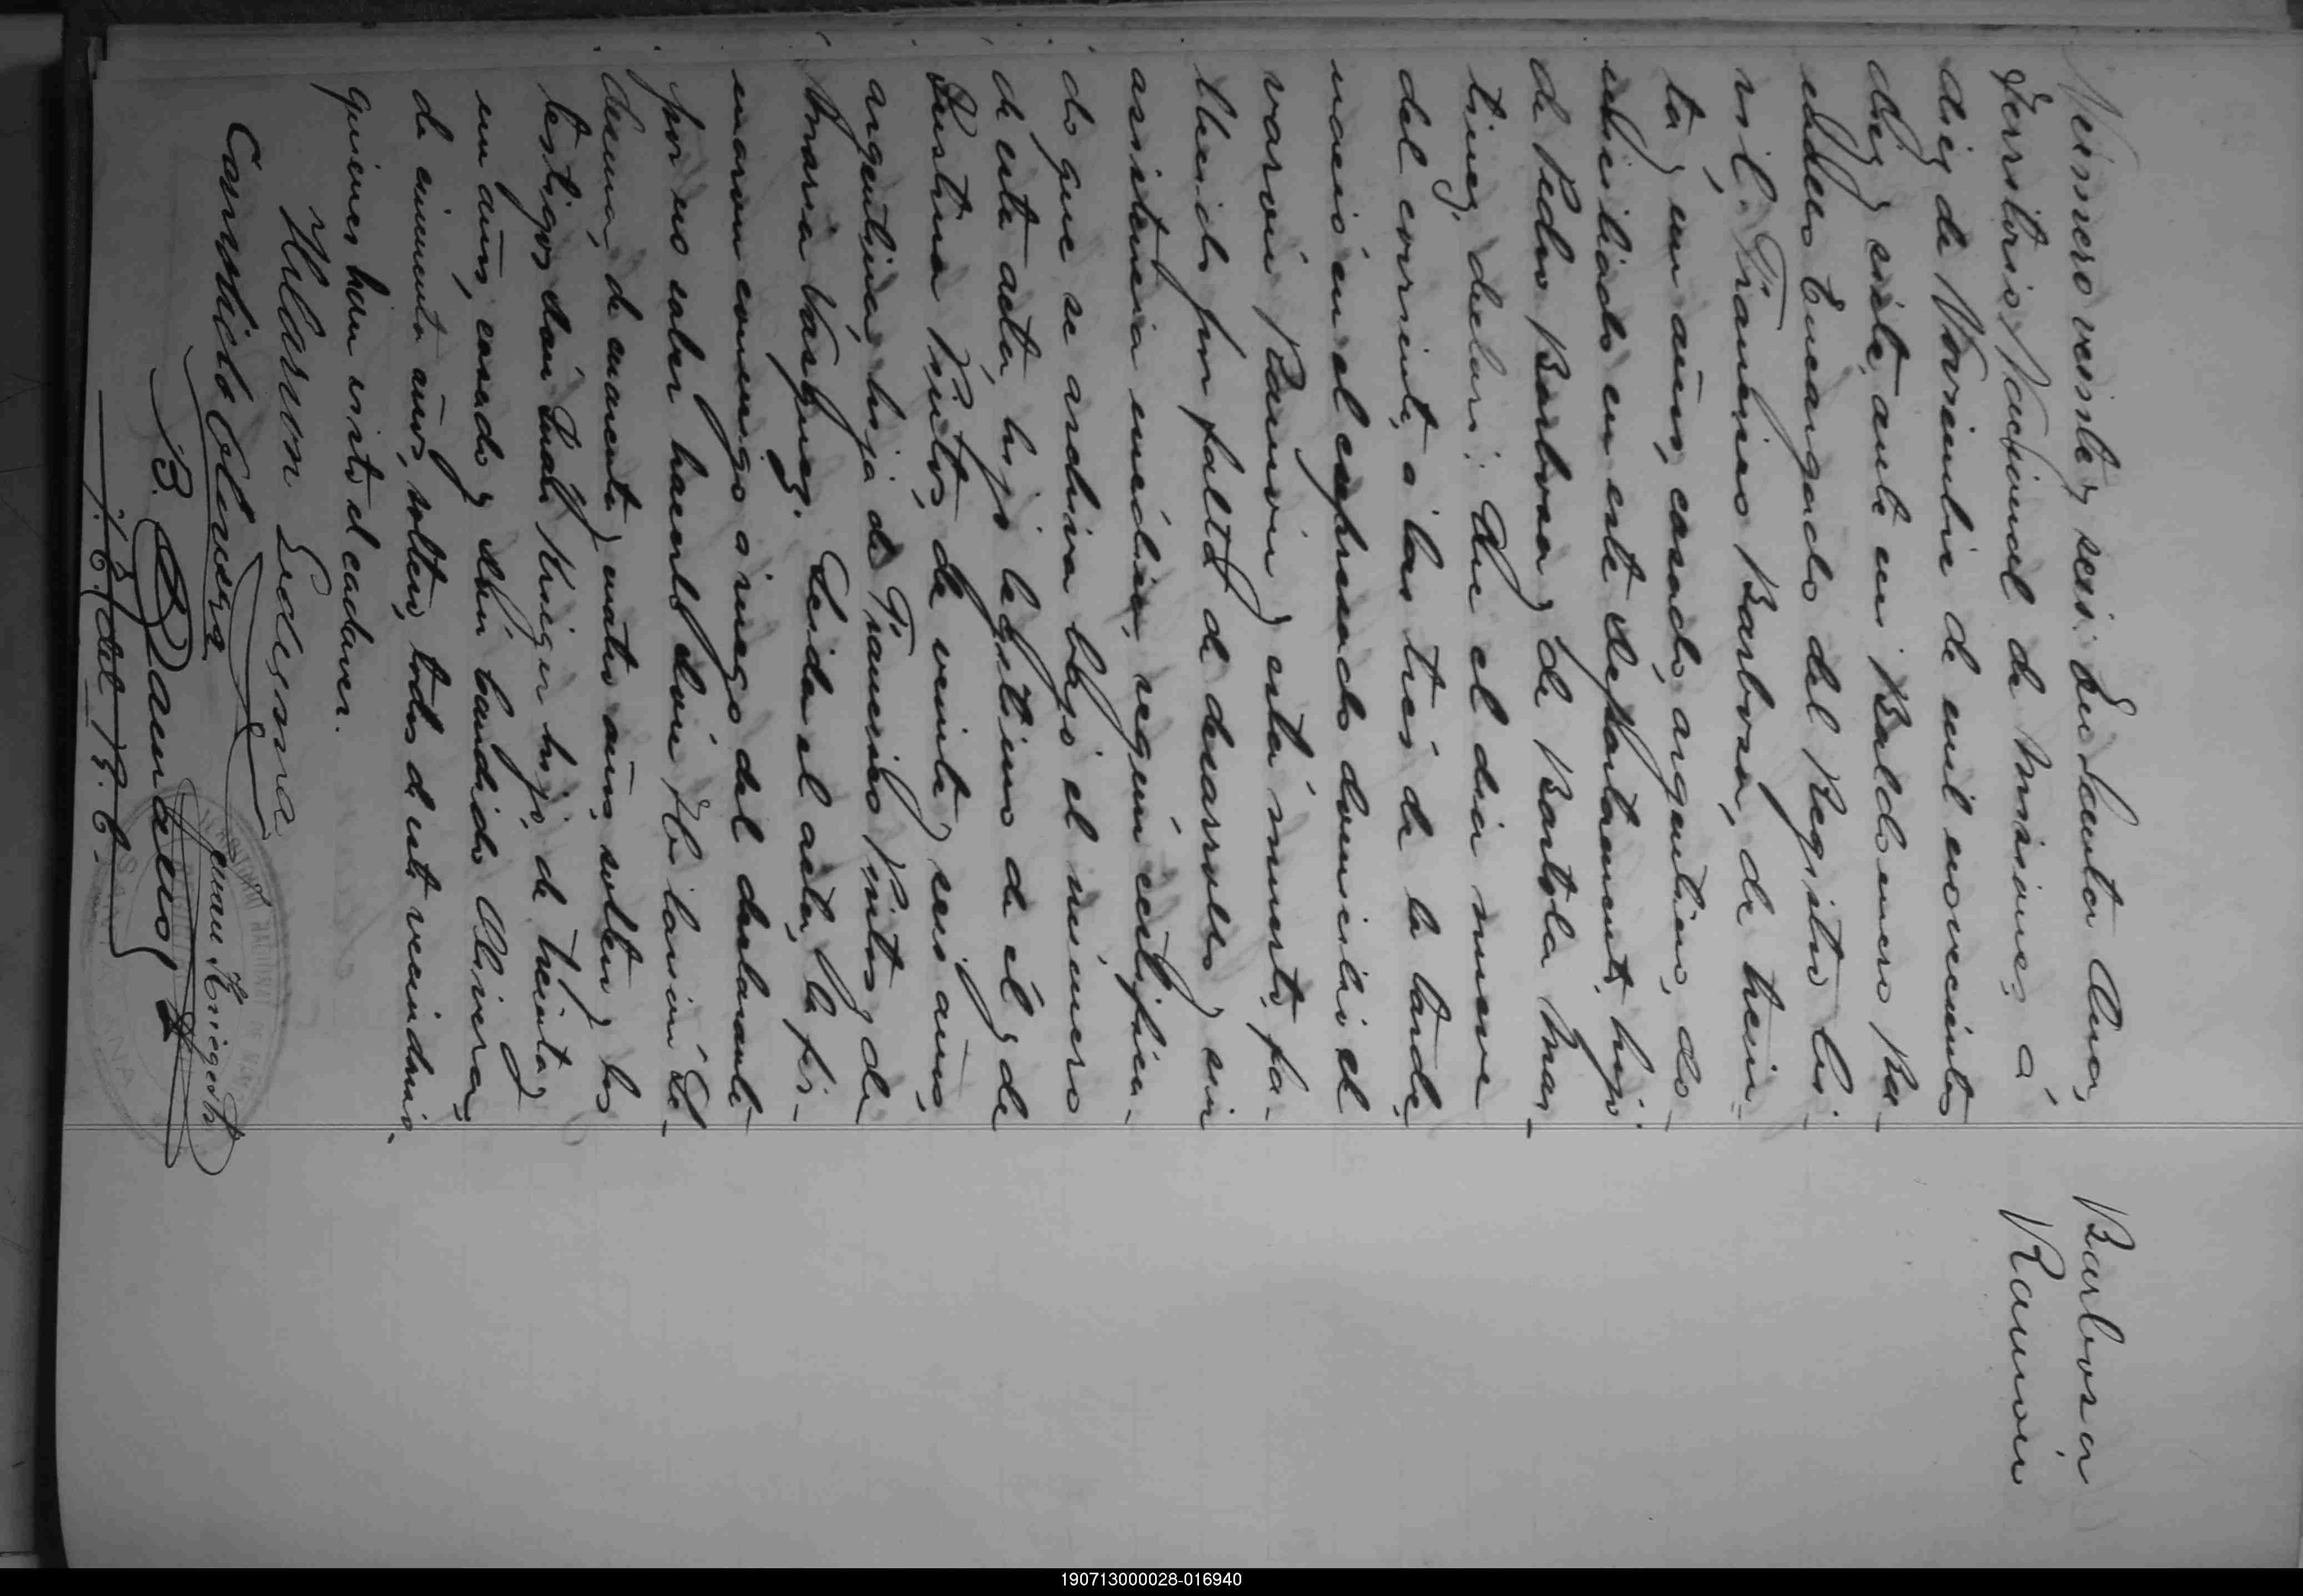 Barbosa
Ramon
Número veinte y seis: En Santa Ana,
Territorio Nacional de Misiones, á
diez de Noviembre de mil novecientos
diez y siete, ante mi Baldomero Ba-
Encargado del Registro Ci-
vil. Francisco Barbosa, de trein-
ta y un años, casado, argentino, do-
miciliado en este departamento, hijo
de Pedro Barbosa y de Bartola Mar-
tinez, declaró: Que el dia nueve
del corriente, a las tres de la tarde,
nació en el expresado domicilio el
varón Ramón y está muerto, fa-
llecido por falta de desarrollo y sin
assistencia médica, según certifica-
do que se archiva bajo el número
de esta acta, hijo legitimo de él y de
Justina Pintos, de veinte y seis años,
argentina, hija de Francisco Pintos y de
Maria Vasquez. Leida el acta, la fir-
maron conmigo a ruego del declarante
por no saber hacerlo don Le-
desma, de cuarenta y cuatro años, soltero y los
testigos don Krieger hijo, de treinta y
un años, casado y don Candido Olivera,
de cincuenta años, soltero, todos de este vecindario,
quienes han visto el cadaver.
Hilarion Ledesma
Candido Olivera
Kriegerh
B.
J. E. del R. C.
190713000028-016940